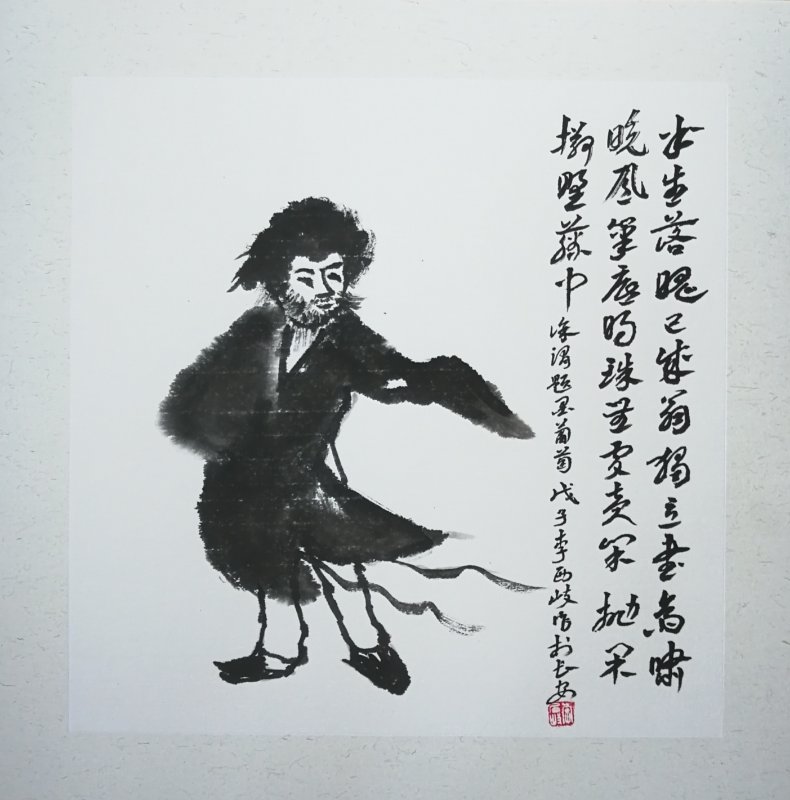 半生落魄已成翁獨立書斋嘯
晚風筆底明珠無處賣闲抛闲
擲野藤中
徐渭題墨葡萄 戊子李西岐作於長安